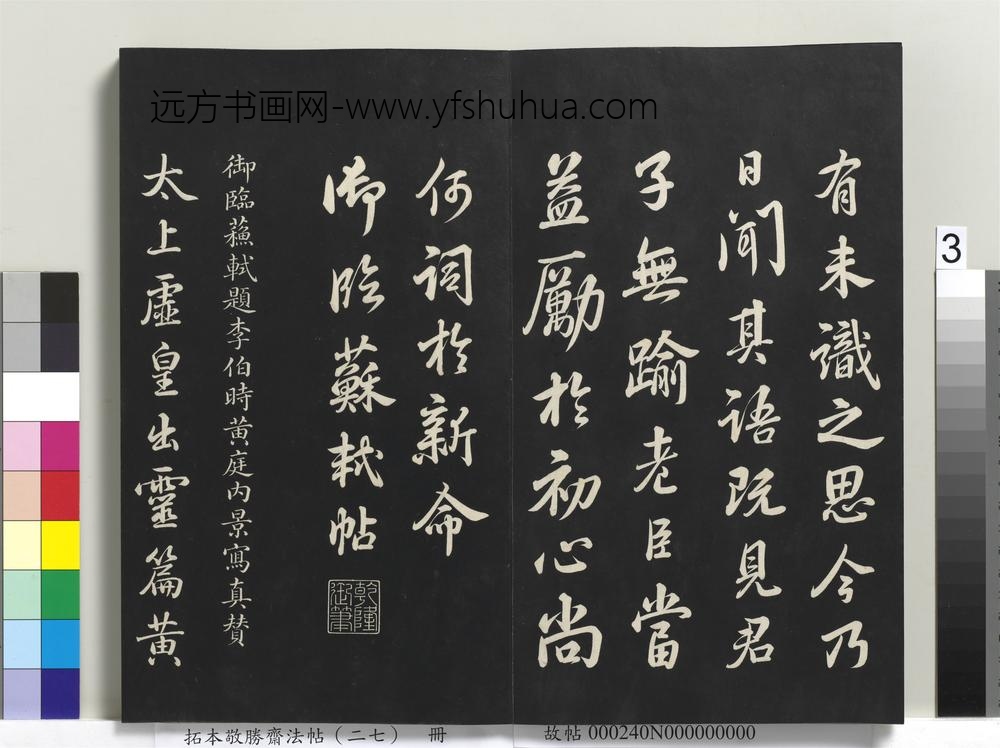 远方书画网-www.yfshuhua.com
有未識之思今乃
日聞其語既見君
子無踰老臣當
益勵於初心尚
何詞於新命
御臨蘇軾帖
乾隆御筆
御臨蘓軾題李伯時黃庭内景寫真賛
太上虛皇出靈篇黃
3
拓本敬勝齋法帖（二七） 冊
故帖 000240N000000000